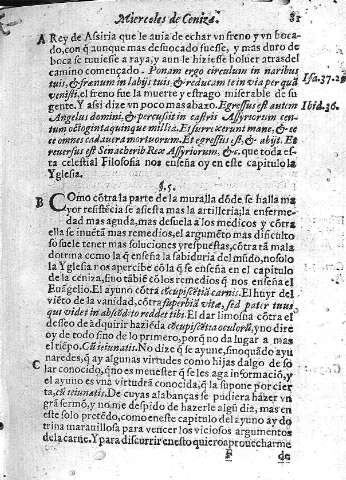 Miercoles de Ceniza. 81
A Rey de Assiria que le auia de echar vn freno y vn boca-
do, con q̃ aunque mas desuocado fuesse, y mas duro de
boca se tuuiesse a raya, y aun le hiziesse boluer atras del
camino començado. Ponam ergo circulum in naribus
tuis, & frænum in labijs tuis, & reducam te in via per quã
venisti. el freno fue la muerte y estrago miserable de su
Isa. 37. 29
gente. Y assi dize vn poco mas abaxo. Egressus est autem
Ibid. 36.
Angelus domini, & percussit in castris Assyriorum cen-
tum octogintaquinque millia. Et surrexerunt mane, & ec
ce omnes cadauera mortuorum. Et egressus est, & abijt. Et
reuersus est Senacherib Rex Assyriorum, &c. que toda es-
ta celestial Filosofia nos enseña oy en este capitulo la
Yglesia.
§. 5.
B COmo cõtra la parte de la muralla dõde se halla ma
yor resistẽcia se assesta mas la artilleria; la enferme-
dad mas aguda, mas desuela a los medicos y cõtra
ella se inuẽtã mas remedios, el argumẽto mas dificulto
so suele tener mas soluciones y respuestas, cõtra tã mala
dotrina como la q̃ enseña la sabiduria del mũdo, no solo
la Yglesia nos apercibe cõ la q̃ se enseña en el capitulo
de la ceniza, sino tãbiẽ cõ los remedios q̃ nos enseña el
Euãgelio. El ayuno cõtra cõcupiscẽtiã carnis. El huyr del
viẽto de la vanidad, cõtra superbiã vitæ, sed pater tuus
qui videt in abscõdito reddet tibi. El dar limosna cõtra el
desseo de adquirir haziẽda cõcupiscẽtia oculorũ, y no dire
oy de todo sino de lo primero, porq̃ no da lugar a mas
el tiẽpo. Cũ ieiunatis. No dize q̃ se ayune, sino quãdo ayu
naredes, q̃ ay algunas virtudes como hijas dalgo de so
C lar conocido, q̃ no es menester q̃ se les aga informaciõ, y
el ayuno es vna virtud tã conocida, q̃ la supone por cier
ta, cũ ieiunatis. De cuyas alabanças se pudiera hazer vn
grã sermõ, y no me despido de hazerle algũ dia, mas en
este solo pretẽdo, como en este capitulo el ayuno ay do
trina marauillosa para vencer los viciosos argumentos
de la carne. Y para discurrir en esto quiero aprouecharme
F de